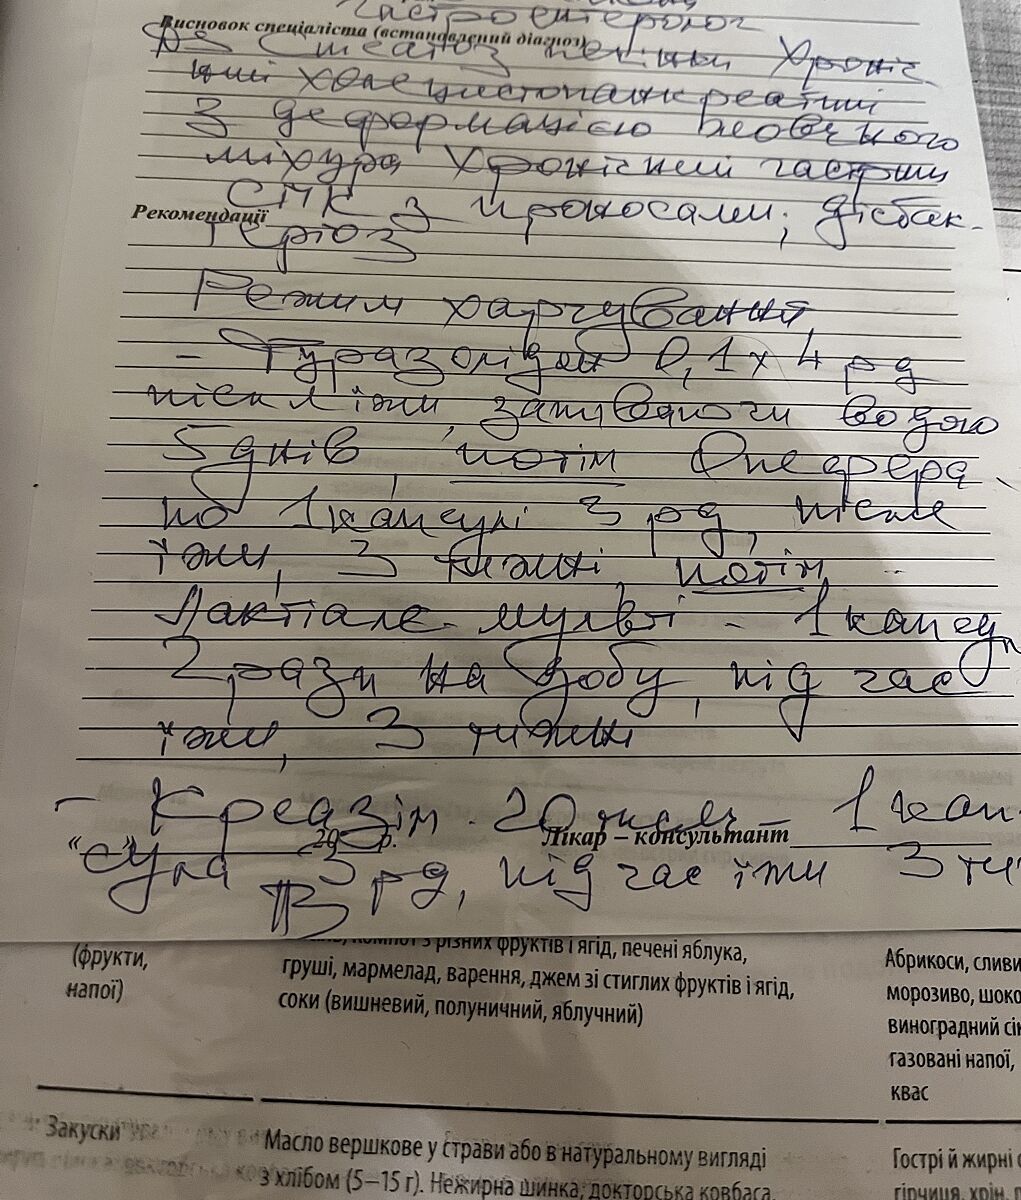 Гастроентеролог
Висновок спеціаліста (встановлений діагноз)
Дз Стеатоз печінки Хроніч
ний холецистопанкреатит
з деформацією жовчного
міхура Хронічний гастрит
СПК з проносами, дісбак-
Рекомендації
теріоз
Режим харчування,
- Фуразолідон 0,1 х 4 рд
після їжи, запиваючи водою
5 днів, потім Опефера
по 1 капсулі 3 рд, після
їжи, 3 тижні, потім
Лактіале-мульті - 1 капсул
2 рази на добу, під час
їжи, 3 тижні
- Креазім 20 тисяч - 1 кап-
20 р. Лікар – консультант
"сула 3 рд, під час їжи 3 ти
компот з різних фруктів і ягід, печені яблука,
(фрукти,
напої)
груші, мармелад, варення, джем зі стиглих фруктів і ягід,
соки (вишневий, полуничний, яблучний)
Абрикоси, сливи
морозиво, шоко
виноградний сік
газовані напої,
квас
Закуски
Масло вершкове у страви або в натуральному вигляді
з хлібом (5–15 г). Нежирна шинка, докторська ковбаса,
Гострі й жирні с
гірчиця, хрін, п